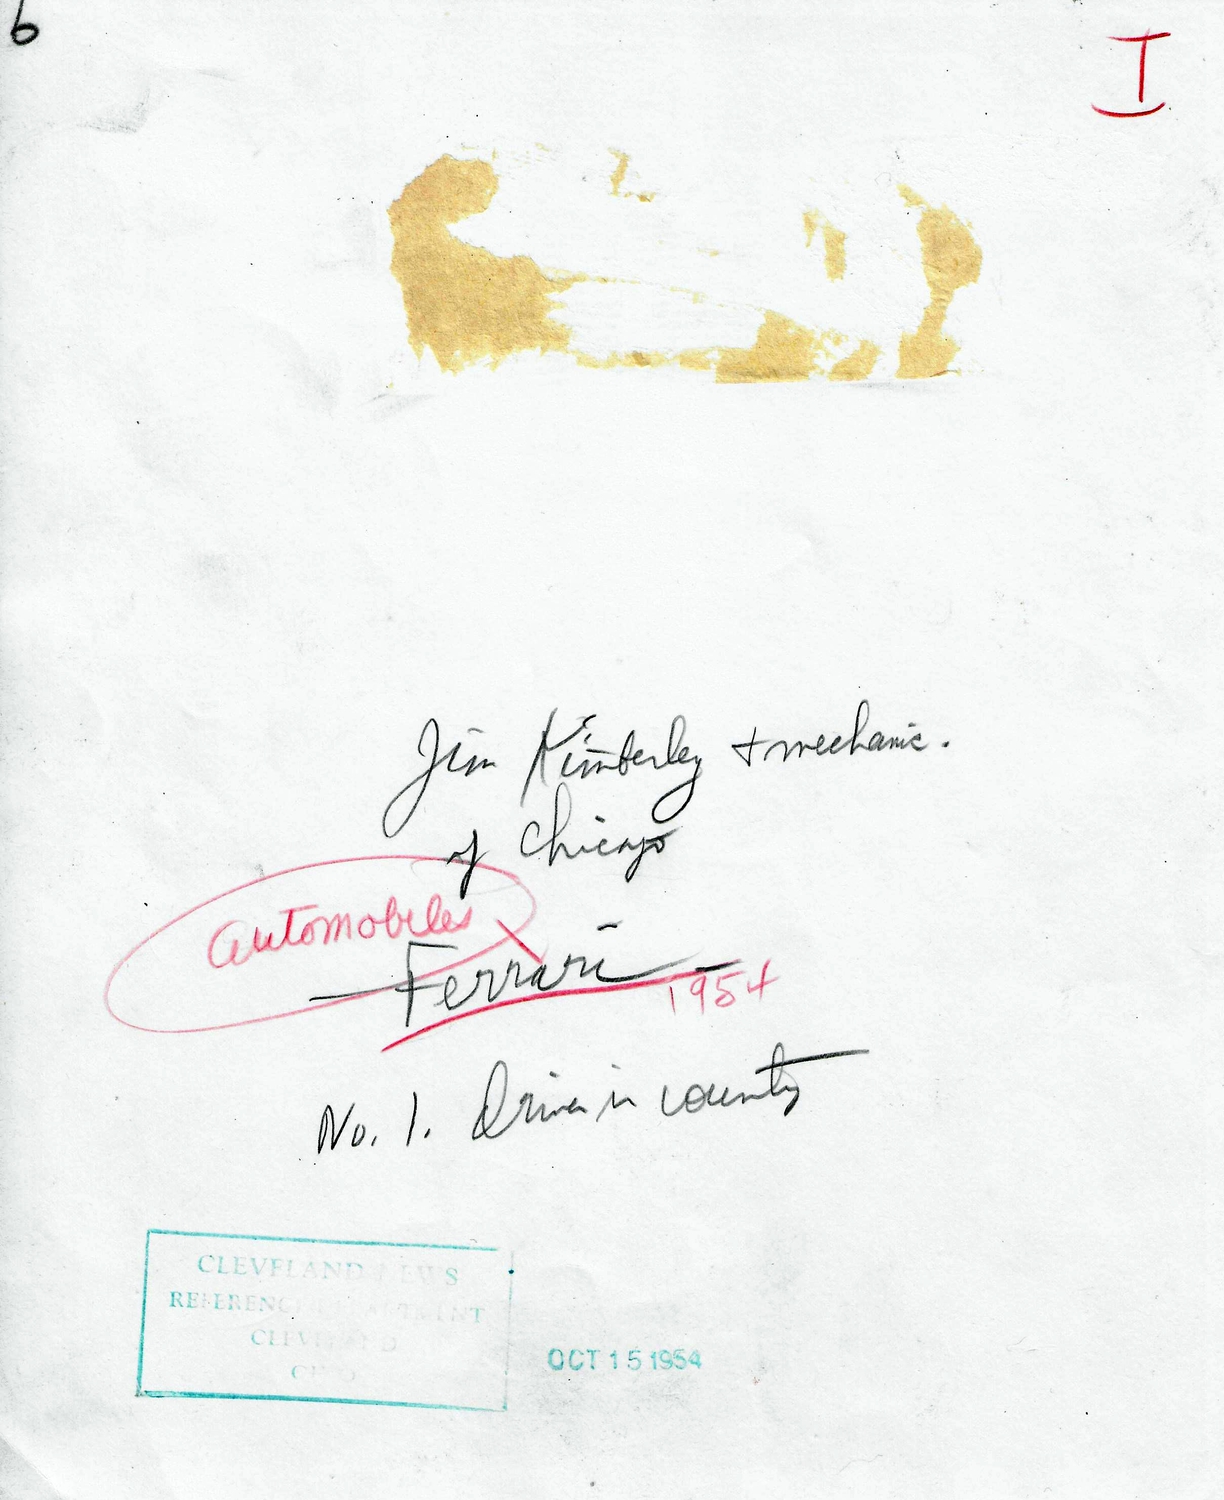 6
I
Jim Kimberley + mechanic.
of Chicago
Automobiles
Ferrari
1954
No. 1. Driver in county
CLEVELAND NEWS
REFERENCE DEPARTMENT
CLEVELAND
OHIO
OCT 15 1954